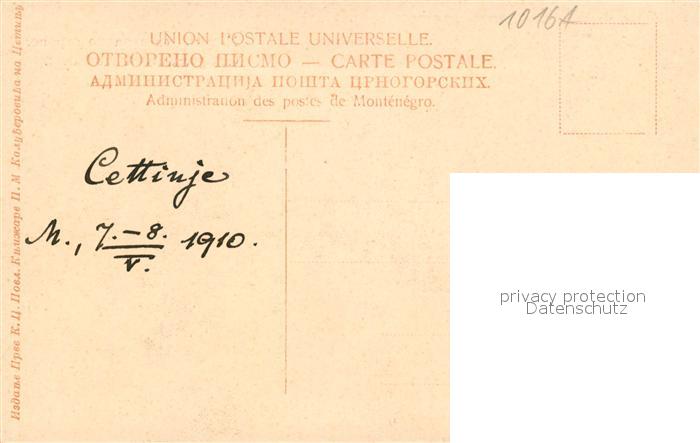 1016A
UNION POSTALE UNIVERSELLE.
ОТВОРЕНО ПИСМО — CARTE POSTALE.
АДМИНИСТРАЦИЈА ПОШТА ЦРНОГОРСКИХ.
Administration des postes de Monténégro.
Cettinje
M., 7.-8. 1910.
V.
privacy protection
Datenschutz
Издање Прве К. Ц. Повл. Књижаре П. М Калуђеровића на Цетињу